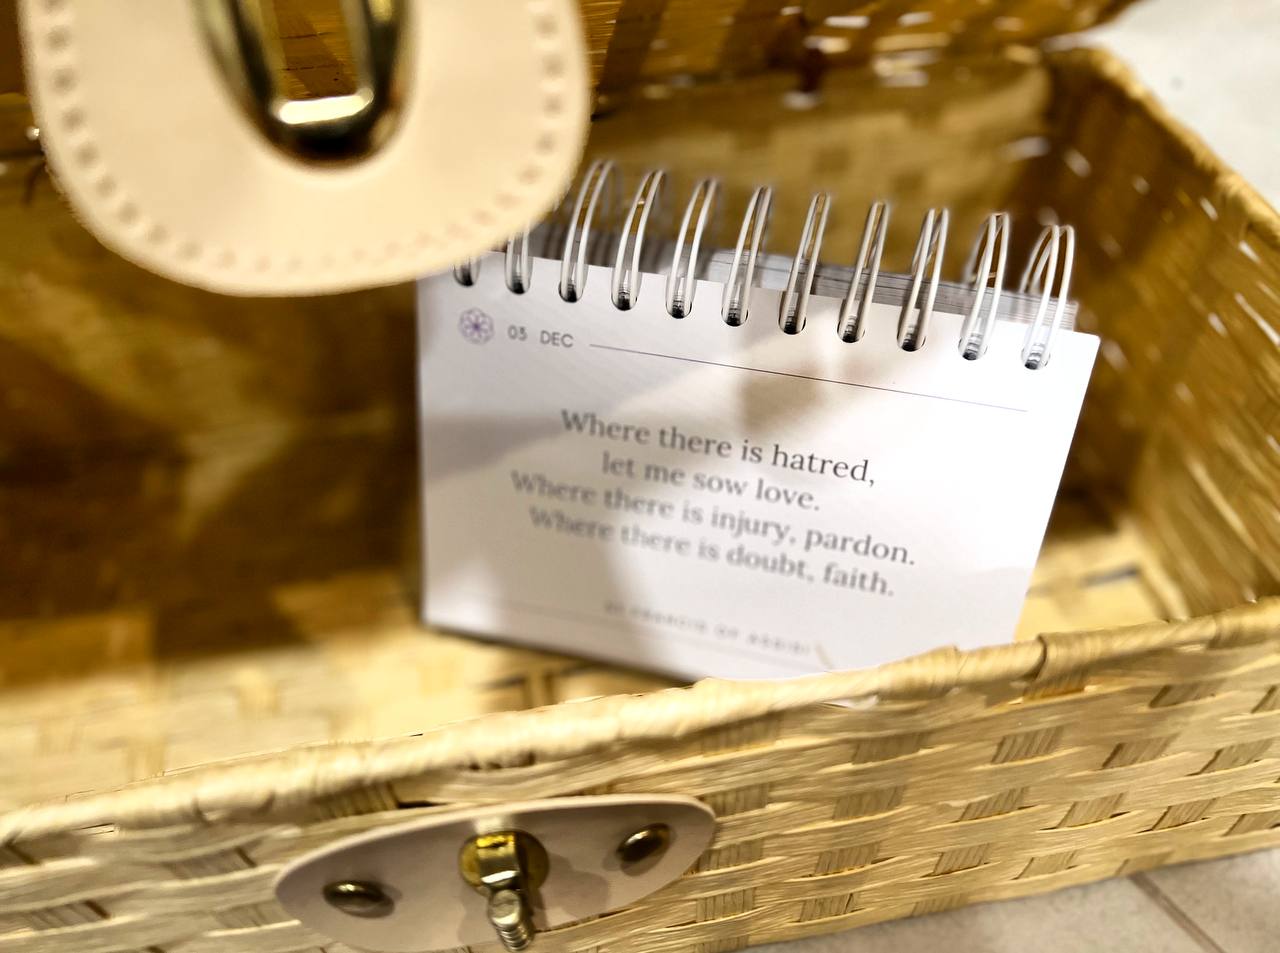 03 DEC
Where there is hatred,
let me sow love.
Where there is injury, pardon.
Where there is doubt, faith.
ST FRANCIS OF ASSISI